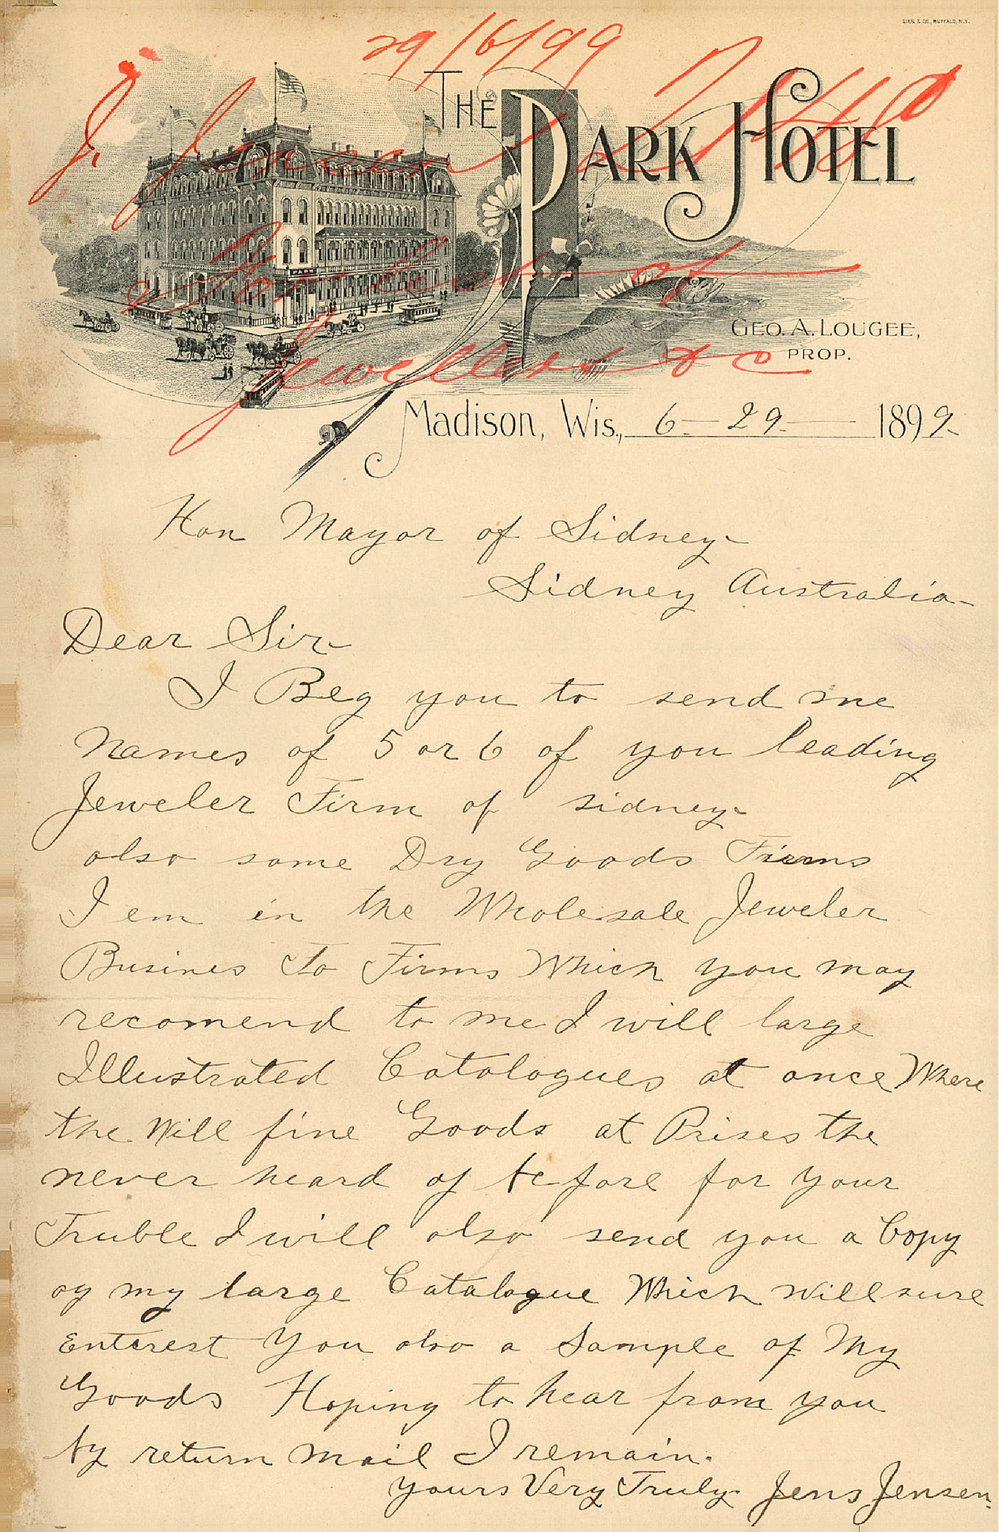 29/6/99
J. Jensen
For list of
Jewellers &c
THE PARK HOTEL
GEO. A. LOUGEE,
PROP.
Madison, Wis., 6-29- 1899
Hon Mayor of Sidney-
Sidney Australia-
Dear Sir-
I Beg you to send me
Names of 5 or 6 of you leading
Jeweler Firm of sidney-
also some Dry Goods Firms
I em in the Wholesale Jeweler
Busines To Firms Which you may
recomend to me I will large
Illustrated Catalogues at once Where
the Will fine Goods at Prises the
never heard of before for your
Truble I will also send you a Copy
og my large Catalogue Which will sure
Enterest You also a Sample of My
Goods Hoping to hear from you
by return mail I remain.
Yours Very Truly- Jens Jensen.